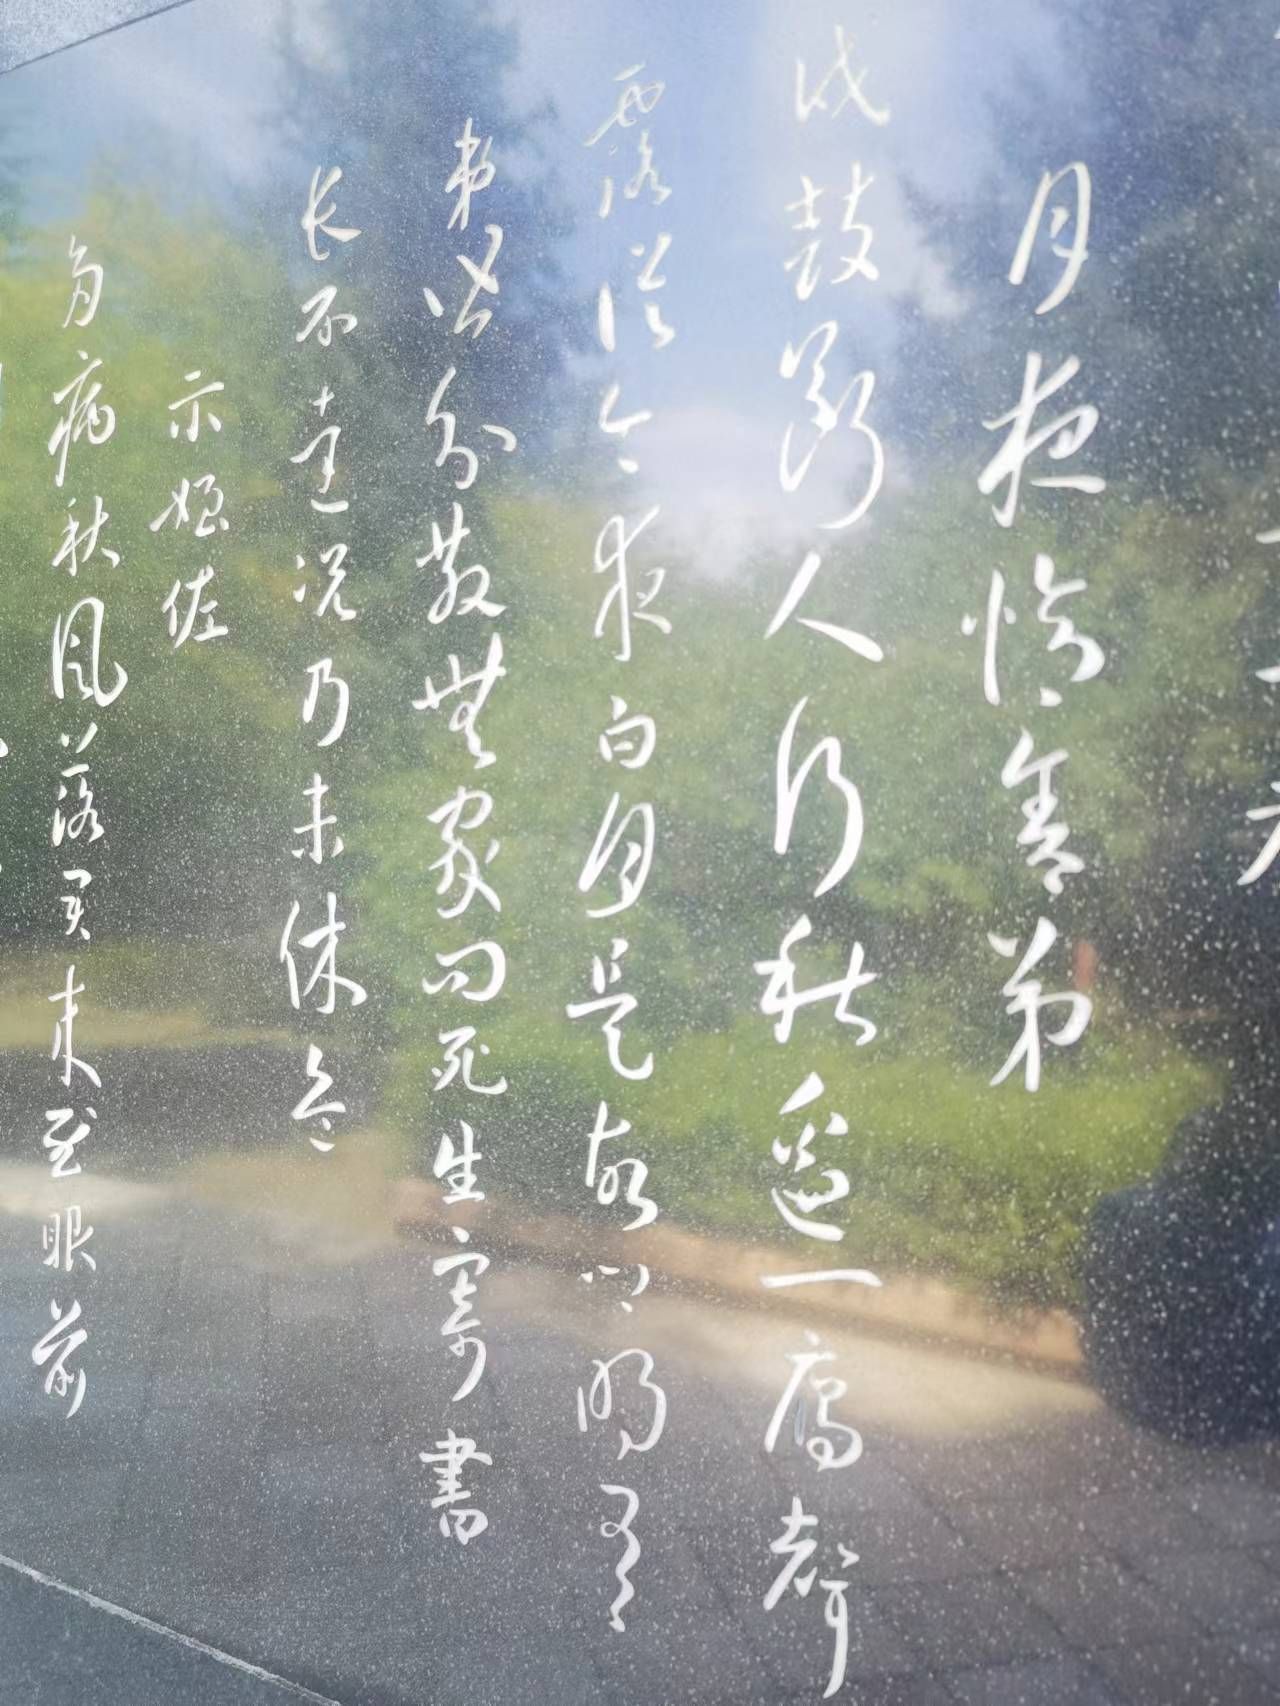 月夜憶舍弟
戍鼓斷人行秋邊一鴈聲
露從今夜白月是故鄉明有
弟皆分散無家問死生寄書
長不達況乃未休兵
示姪佐
多病秋風落君來慰眼前